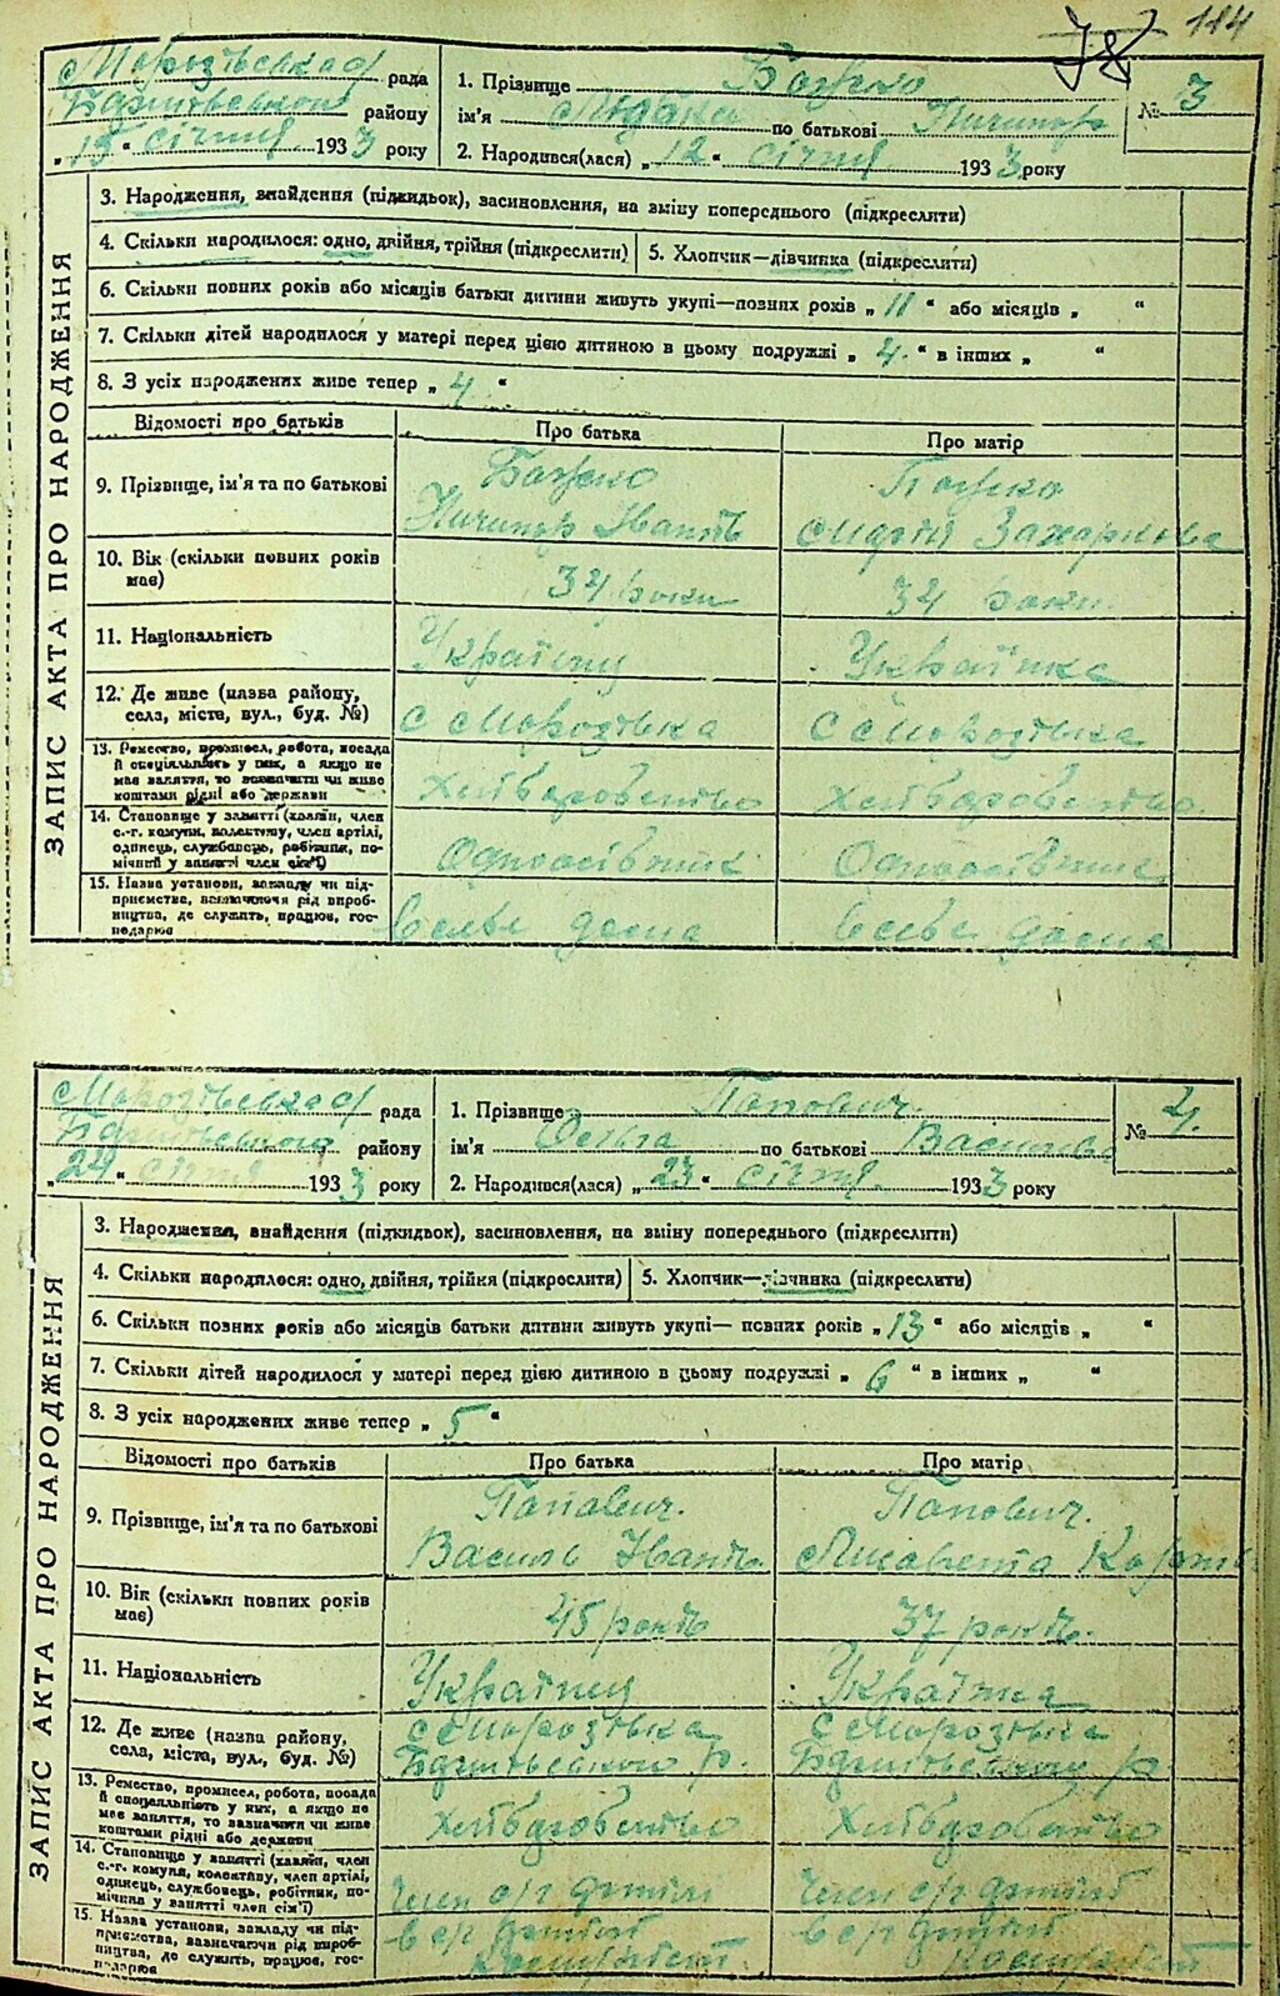 114
Морозівська с/ рада
району
„15“ січня 1933 року
1. Прізвище Божко
ім'я по батькові Ничипор
2. Народився(лася) „12“ січня 1933 року
№ 3
ЗАПИС АКТА ПРО НАРОДЖЕННЯ
3. Народження, знайдення (підкидьок), засиновлення, на зміну попереднього (підкреслити)
4. Скільки народилося: одно, двійня, трійня (підкреслити)
5. Хлопчик—дівчинка (підкреслити)
6. Скільки повних років або місяців батьки дитини живуть укупі—повних років „11“ або місяців „ “
7. Скільки дітей народилося у матері перед цією дитиною в цьому подружжі „4.“ в інших „ “
8. З усіх народжених живе тепер „4“
Відомості про батьків
Про батька
Про матір
9. Прізвище, ім'я та по батькові
Божко
Ничипор Іванів
Божко
Марія Захарнова
10. Вік (скільки повних років
має)
34 роки
34 роки
11. Національність
Українец
Українка
12. Де живе (назва району,
села, міста, вул., буд. №)
с Морозівка
с Морозівка
13. Ремество, промисел, робота, посада
й спеціяльність у них, а якщо не
має заняття, то зазначити чи живе
коштами рідні або держави
Хліборобство
Хліборобство
14. Становище у занятті (хазяїн, член
с.-г. комуни, колективу, член артілі,
одинець, службовець, робітник, по-
мічний у занятті член сім'ї)
Одноосібник
Одноосібник
15. Назва установи, закладу чи під-
приємства, зазначаючи рід вироб-
ництва, де служить, працює, гос-
подарює
в себе дома
в себе дома
Морозівська с/ рада
району
„24“ січня 1933 року
1. Прізвище Папович.
ім'я Ольга по батькові Василівна
2. Народився(лася) „23“ січня. 1933 року
№ 4.
ЗАПИС АКТА ПРО НАРОДЖЕННЯ
3. Народження, знайдення (підкидьок), засиновлення, на зміну попереднього (підкреслити)
4. Скільки народилося: одно, двійня, трійня (підкреслити)
5. Хлопчик—дівчинка (підкреслити)
6. Скільки повних років або місяців батьки дитини живуть укупі— повних років „13“ або місяців „ “
7. Скільки дітей народилося у матері перед цією дитиною в цьому подружжі „6“ в інших „ “
8. З усіх народжених живе тепер „5“
Відомості про батьків
Про батька
Про матір
9. Прізвище, ім'я та по батькові
Папович.
Василь Іванів.
Папович.
Лисавета
10. Вік (скільки повних років
має)
45 років
37 років.
11. Національність
Українец
Українка
12. Де живе (назва району,
села, міста, вул., буд. №)
с Морозівка
р.
с Морозівка
р
13. Ремество, промисел, робота, посада
й спеціяльність у них, а якщо не
має заняття, то зазначити чи живе
коштами рідні або держави
Хліборобство
Хліборобство
14. Становище у занятті (хазяїн, член
с.-г. комуни, колективу, член артілі,
одинець, службовець, робітник, по-
мічний у занятті член сім'ї)
Член с/г артілі
Член с/г артілі
15. Назва установи, закладу чи під-
приємства, зазначаючи рід вироб-
ництва, де служить, працює, гос-
подарює
в с/г артілі
в с/г артілі